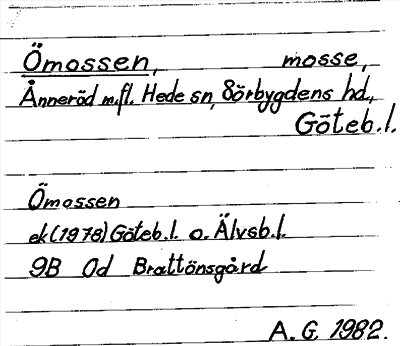 Ömossen, mosse,
Ånneröd m.fl. Hede sn, Sörbygdens hd.,
Göteb.l.
Ömossen
ek(1978)Göteb.l. o. Älvsb.l.
9B 0d Brattönsgård
A. G. 1982.